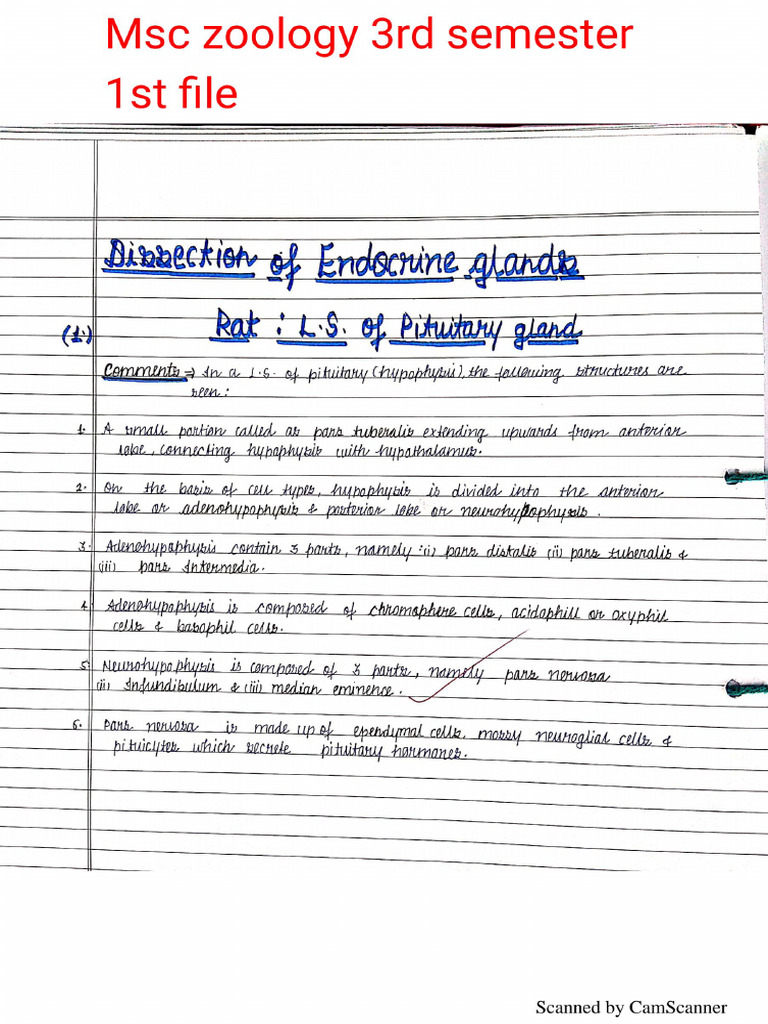 Msc zoology 3rd semester
1st file
Dissection of Endocrine glands
(1.) Rat : L.S. of Pituitary gland
Comments → In a L.S. of pituitary (hypophysis), the following structures are
seen :
1. A small portion called as pars tuberalis extending upwards from anterior
lobe, connecting hypophysis with hypothalamus.
2. On the basis of cell types, hypophysis is divided into the anterior
lobe or adenohypophysis & posterior lobe or neurohypophysis.
3. Adenohypophysis contain 3 parts, namely : (i) pars distalis (ii) pars tuberalis &
(iii) pars Intermedia.
4. Adenohypophysis is composed of chromophere cells, acidophill or oxyphil
cells & basophil cells.
5. Neurohypophysis is composed of 3 parts, namely pars nervosa
(ii) Infundibulum & (iii) median eminence.
6. Pars nervosa is made up of ependymal cells, mossy neuroglial cells &
pituicytes which secrete pituitary hormones.
Scanned by CamScanner